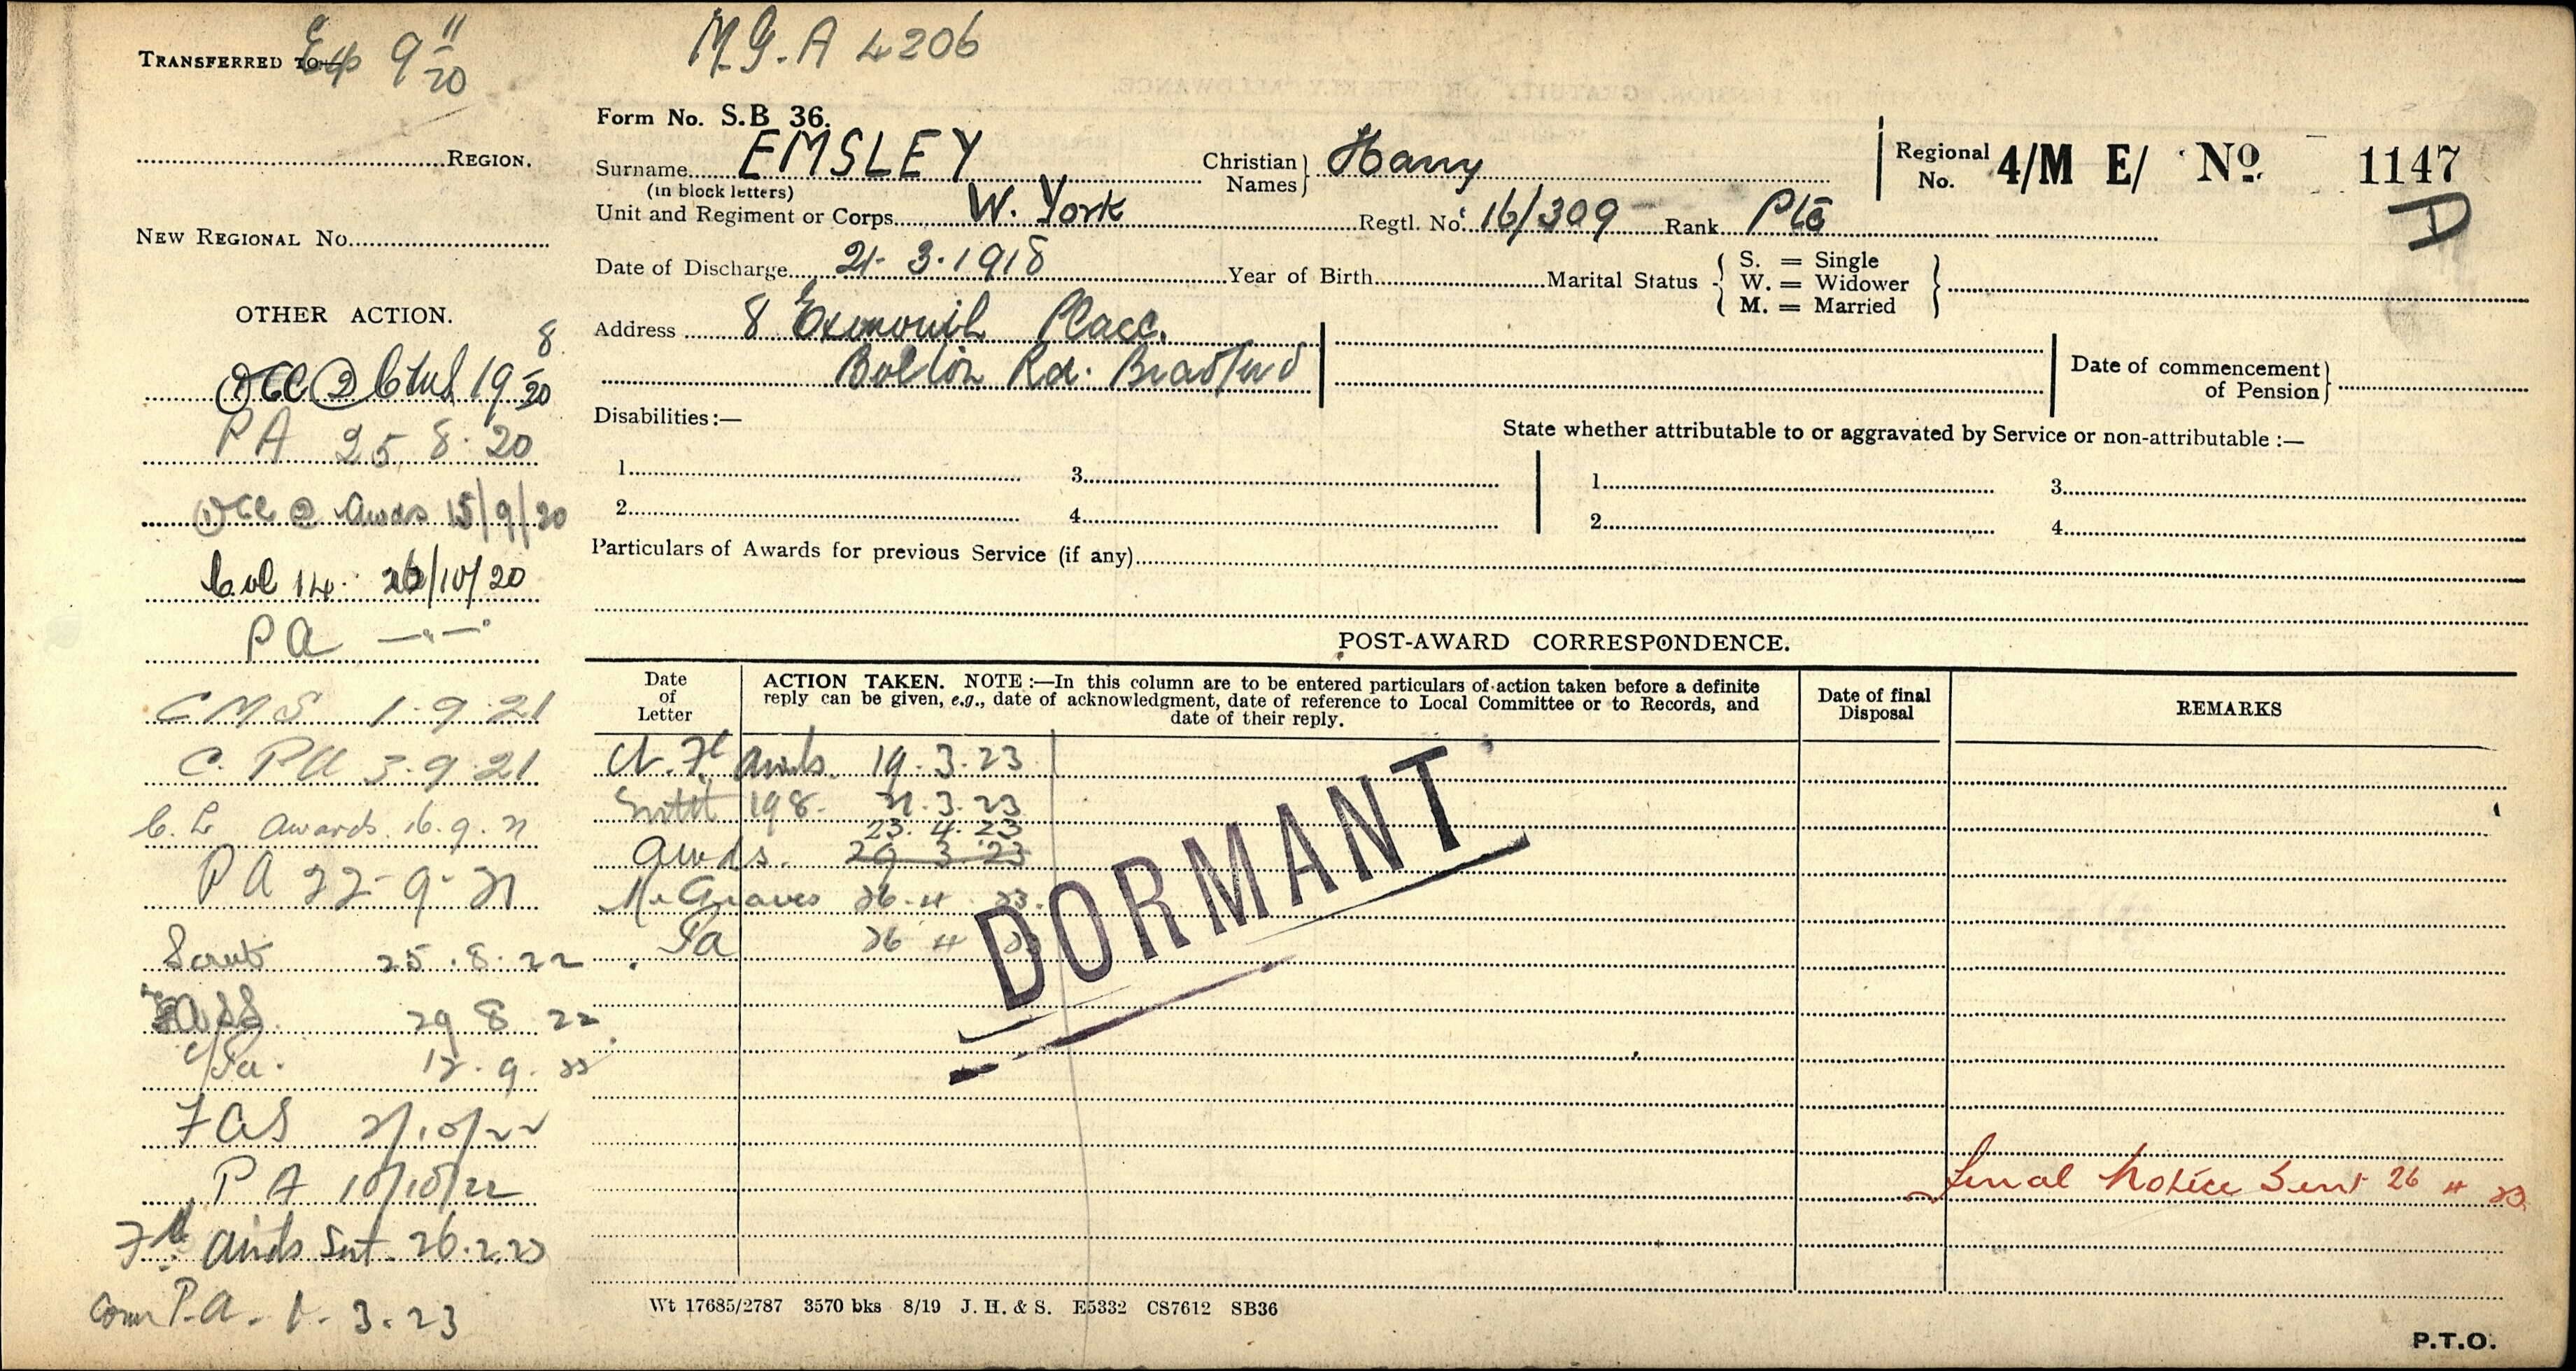 TRANSFERRED TO
9 11/20
M.G.A 4206
REGION.
NEW REGIONAL No.
OTHER ACTION.
19 8/20
PA 25 8.20
Awds 15/9/20
14. 26/10/20
PA —"—
CMS 1-9-21
C. PA 3.9.21
Awards 16.9.21
PA 22-9-21
Scrut 25.8.22
29 8 22
12.9.22
FAS 2/10/22
PA 10/10/22
Fl. Awds Snt. 26.2.23
Com P.A. 1.3.23
Form No. S.B 36.
Surname EMSLEY Christian Names Harry
(in block letters)
Regional No. 4/M E/ No. 1147
D
Unit and Regiment or Corps W. York Regtl. No. 16/309 Rank Pte
Date of Discharge 21.3.1918 Year of Birth Marital Status S. = Single
W. = Widower
M. = Married
Address 8 Exmouth Place.
Bolton Rd. Bradford
Date of commencement of Pension
Disabilities:—
State whether attributable to or aggravated by Service or non-attributable :—
1. 3. 1. 3.
2. 4. 2. 4.
Particulars of Awards for previous Service (if any)
POST-AWARD CORRESPONDENCE.
Date of Letter
ACTION TAKEN. NOTE :—In this column are to be entered particulars of action taken before a definite
reply can be given, e.g., date of acknowledgment, date of reference to Local Committee or to Records, and
date of their reply.
Date of final Disposal
REMARKS
Awds. 19.3.23
198. 21.3.23
23.4.23
Awds. 29 3 23
Graves 26.4.23.
Pa 26 4 23
DORMANT
Final Notice Sent 26 4 23
Wt 17685/2787 3570 bks 8/19 J. H. & S. E5332 CS7612 SB36
P.T.O.